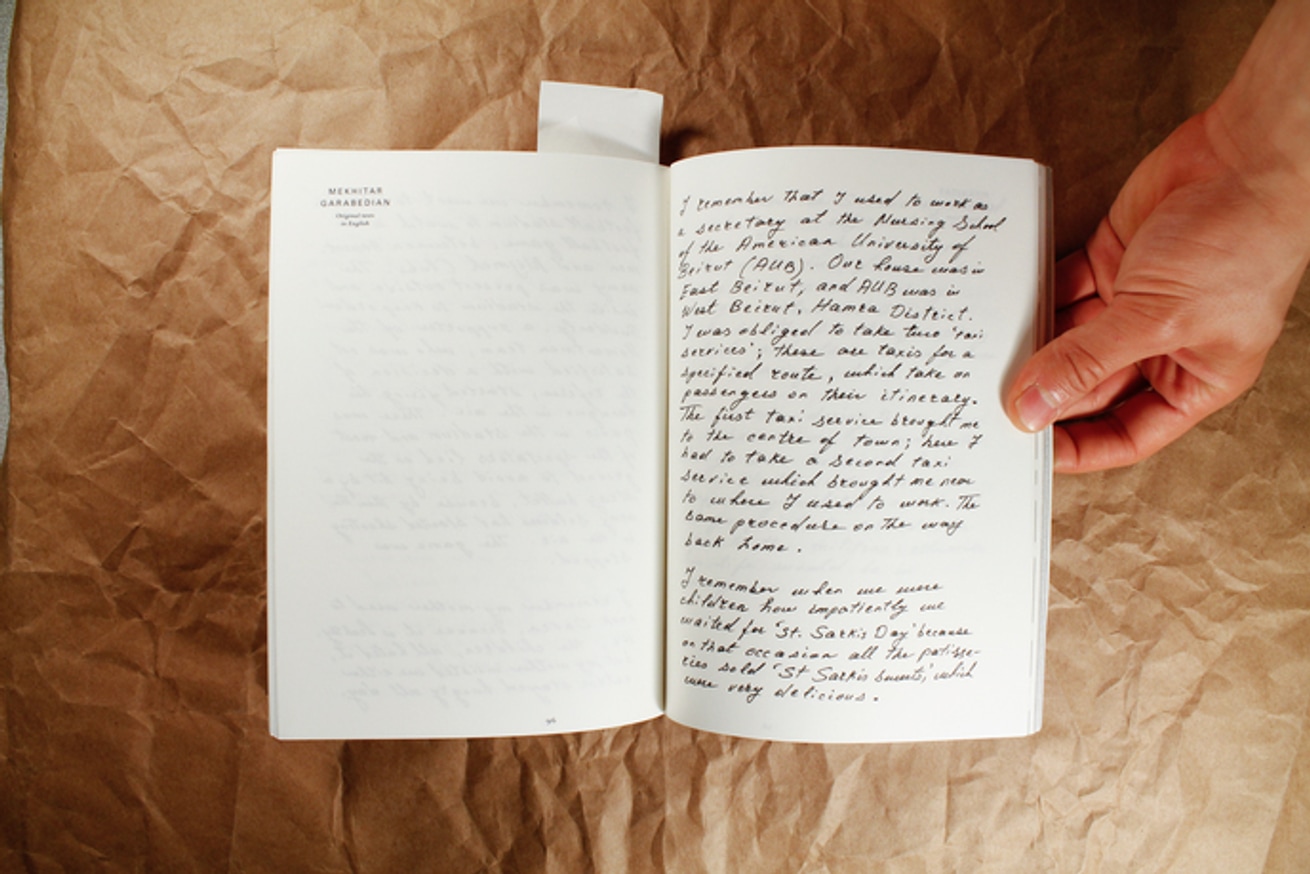 MEKHITAR
GARABEDIAN
Original text
in English
I remember that I used to work as
a secretary at the Nursing School
of the American University of
Beirut (AUB). Our house was in
East Beirut, and AUB was in
West Beirut, Hamra District.
I was obliged to take two 'taxi
services'; these are taxis for a
specified route, which take on
passengers on their itinerary.
The first taxi service brought me
to the centre of town; here I
had to take a second taxi
service which brought me near
to where I used to work. The
same procedure on the way
back home.
I remember when we were
children how impatiently we
waited for 'St. Sarkis Day' because
on that occasion all the patisse-
ries sold 'St Sarkis Sweets', which
were very delicious.